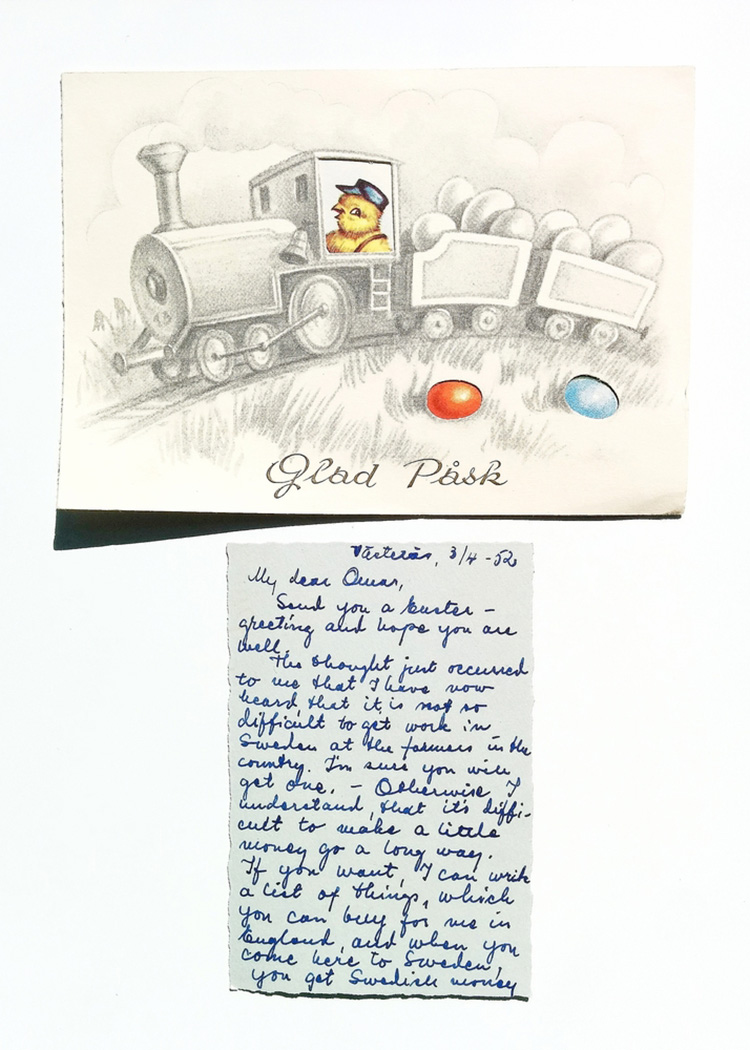 Glad Påsk
Västerås, 3/4 - 52
My dear Omar,
Send you a Easter -
greeting and hope you are
well.
The thought just occurred
to me that I have now
heard that it is not so
difficult to get work in
Sweden at the farmers in the
country. I'm sure you will
get one. - Otherwise I
understand, that it's diffi-
cult to make a little
money go a long way.
If you want, I can write
a list of things, which
you can buy for me in
England, and when you
come here to Sweden,
you get Swedish money